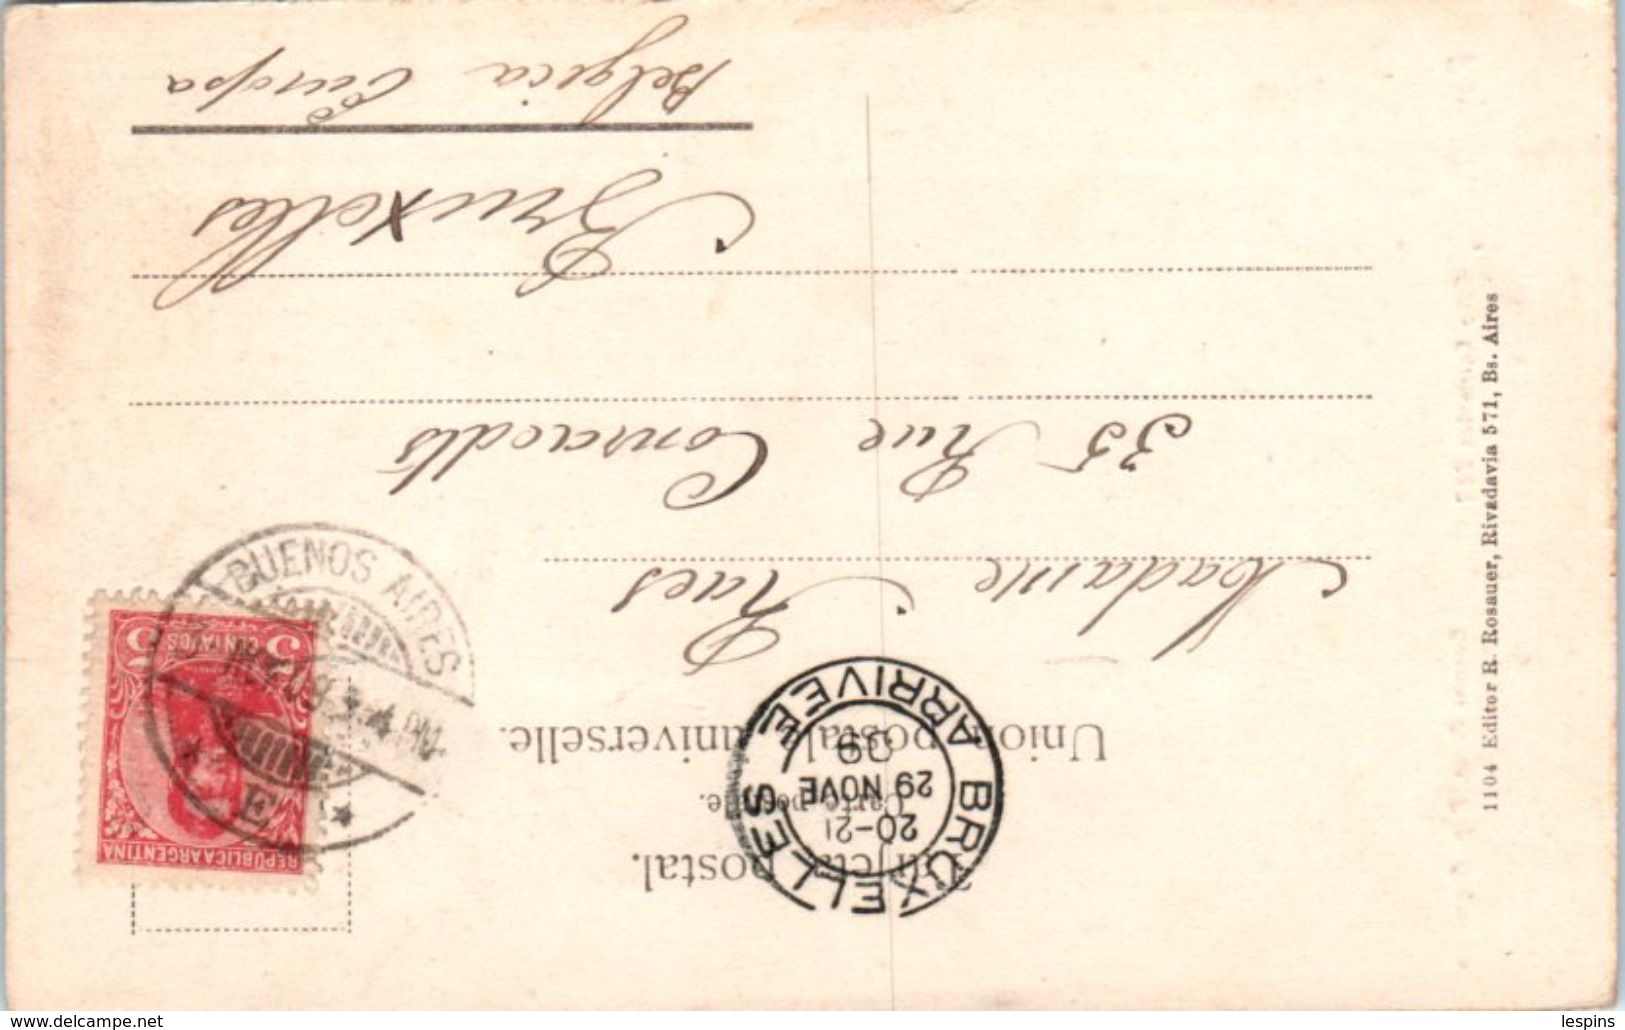 Tarjeta postal.
Carte postale.
Union postal universelle.
REPUBLICA ARGENTINA
5 CENTAVOS 5
BUENOS AIRES
4 PM
E
BRUXELLES ARRIVEE
20-21
29 NOVE
09
Madame Raes
35 Rue Conraedts
Bruxelles
Belgica Europa
1104 Editor R. Rosauer, Rivadavia 571, Bs. Aires
www.delcampe.net
lespins